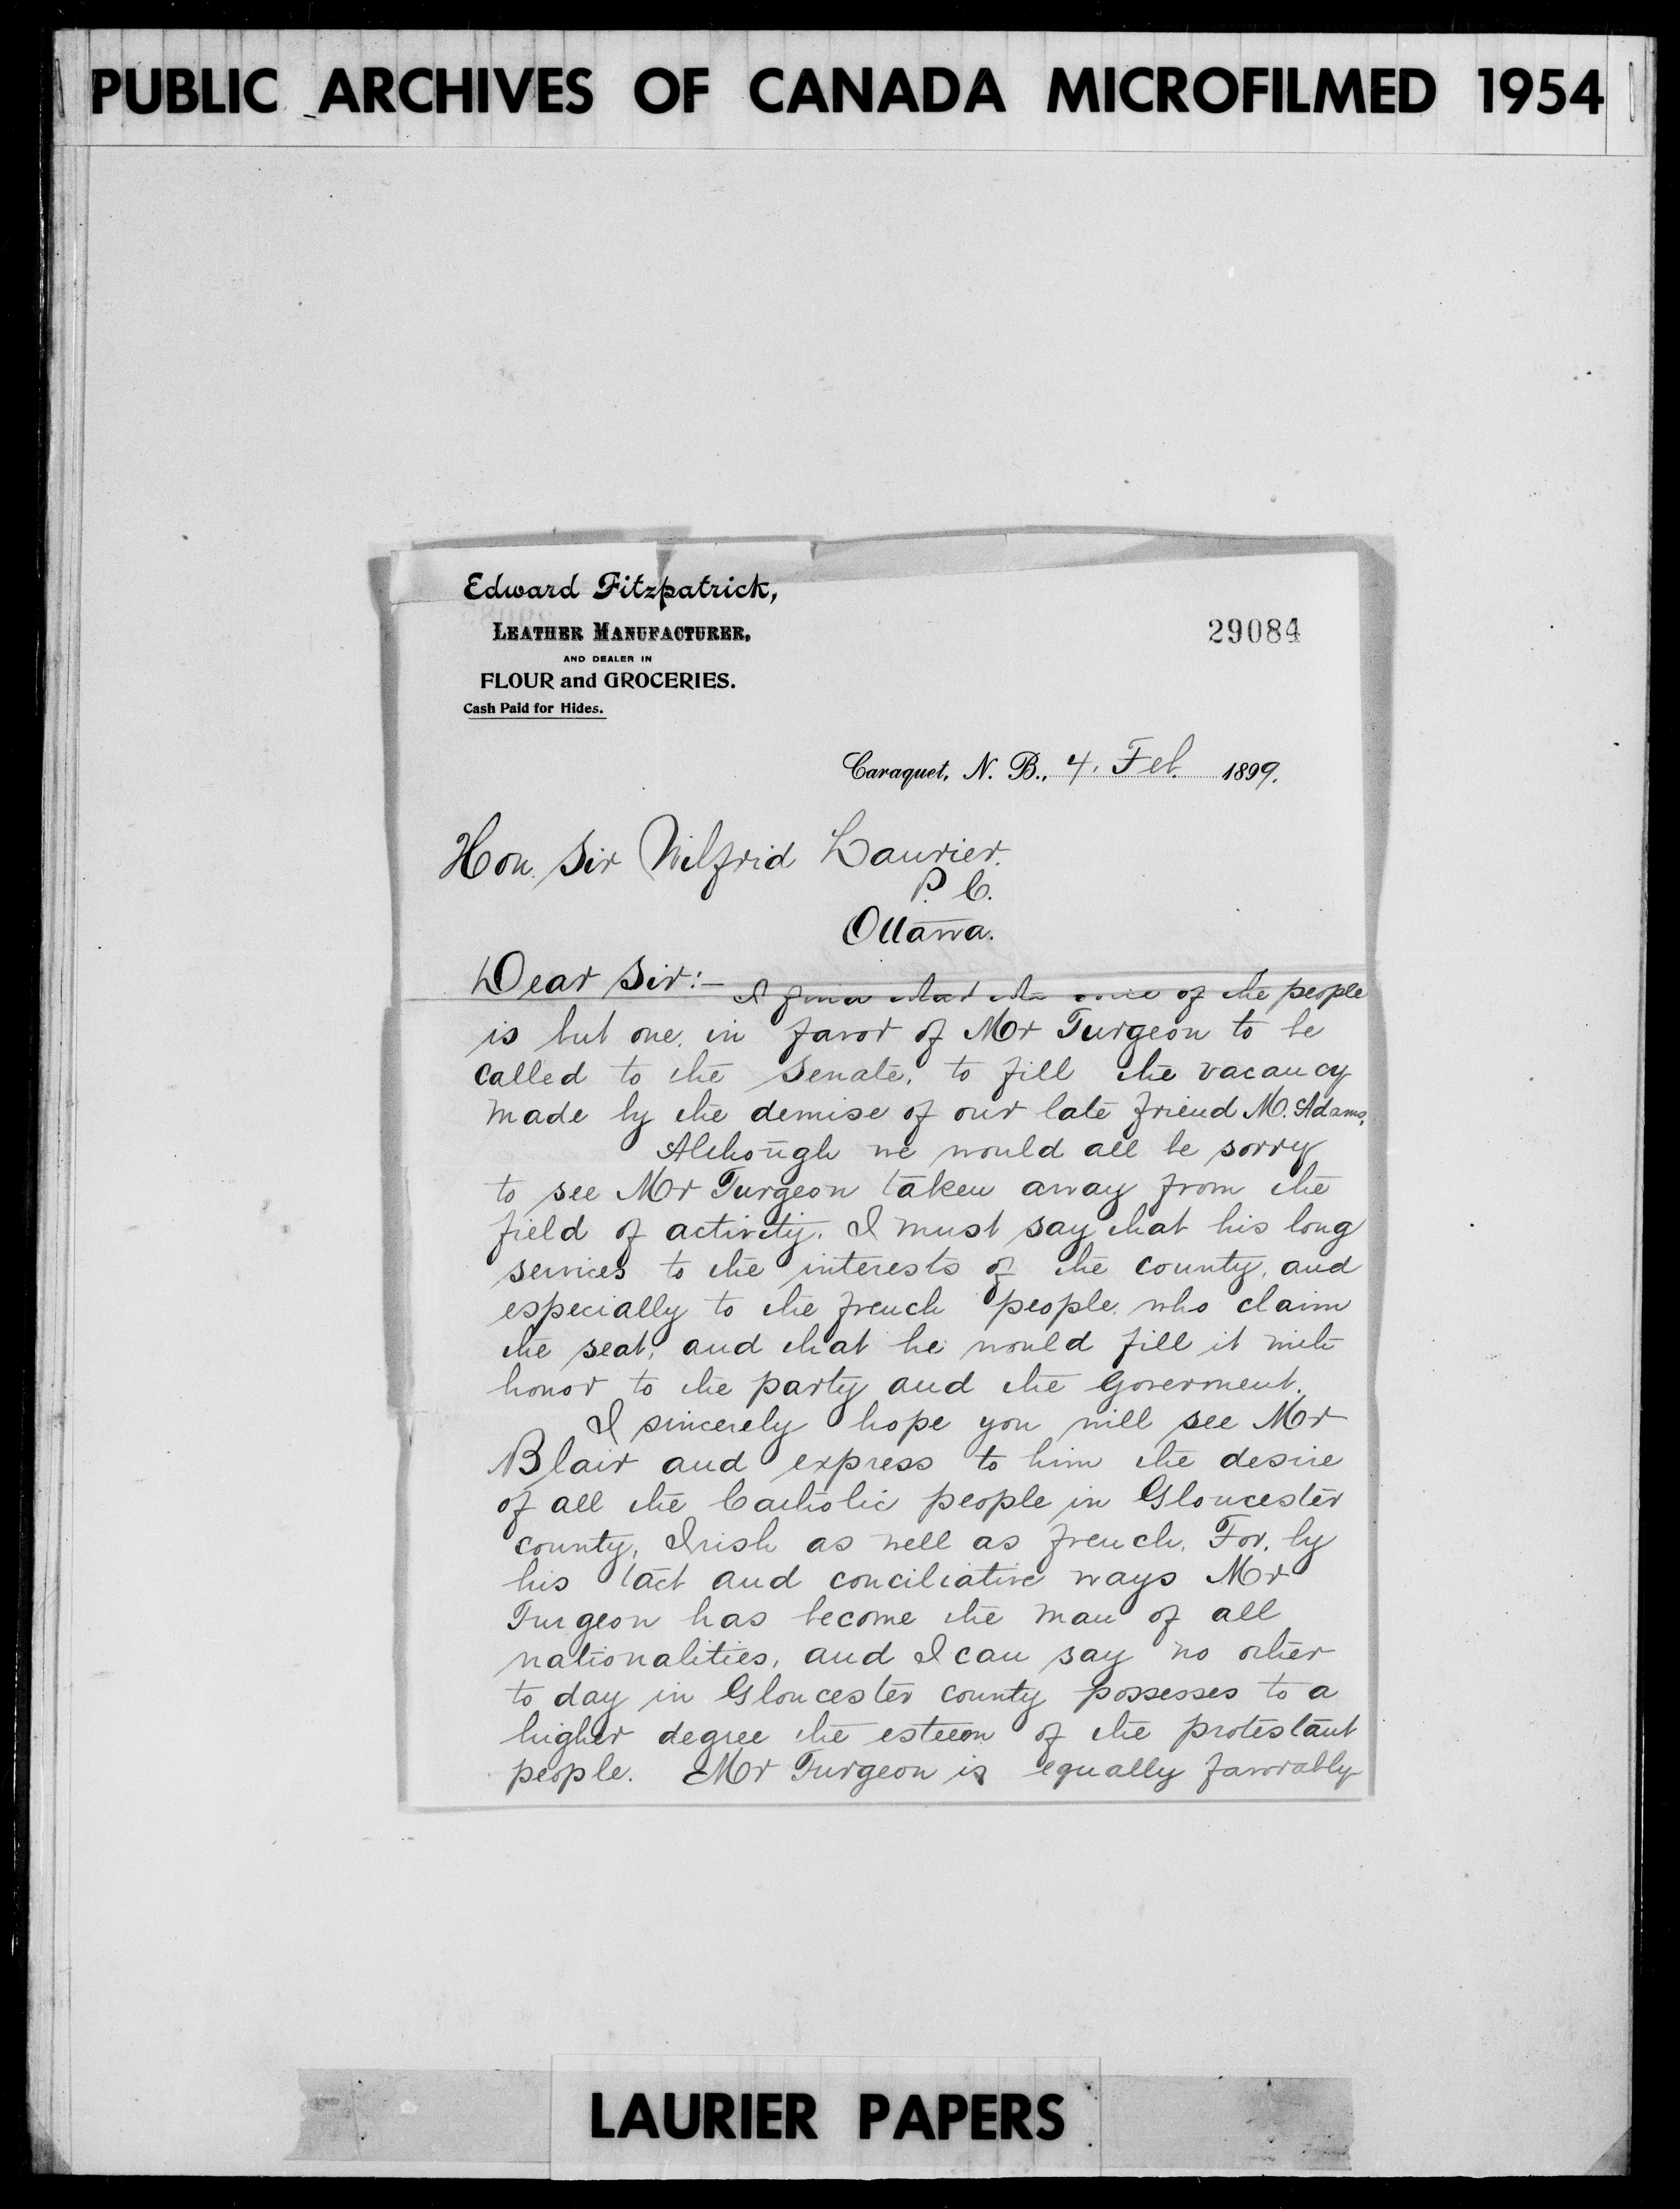 PUBLIC ARCHIVES OF CANADA MICROFILMED 1954
Edward Fitzpatrick,
LEATHER MANUFACTURER,
AND DEALER IN
FLOUR and GROCERIES.
Cash Paid for Hides.
29084
Caraquet, N. B., 4. Feb. 1899.
Hon. Sir Wilfrid Laurier.
P. C.
Ottawa.
Dear Sir:—
I find that the voice of the people
is but one, in favor of Mr Turgeon to be
called to the Senate, to fill the vacancy
made by the demise of our late friend M. Adams.
Although we would all be sorry
to see Mr Turgeon taken away from the
field of activity, I must say that his long
services to the interests of the county, and
especially to the french people, who claim
the seat, and that he would fill it with
honor to the party and the Goverment.
I sincerely hope you will see Mr
Blair and express to him the desire
of all the Catholic people in Gloucester
county, Irish as well as french. For, by
his tact and conciliative ways Mr
Turgeon has become the man of all
nationalities, and I can say no other
to day in Gloucester county possesses to a
higher degree the esteem of the protestant
people. Mr Turgeon is equally favorably
LAURIER PAPERS